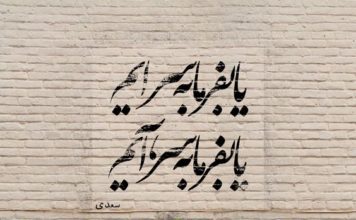 یا بفرما به سرایم
یا بفرما به سر، آیم
سعدی